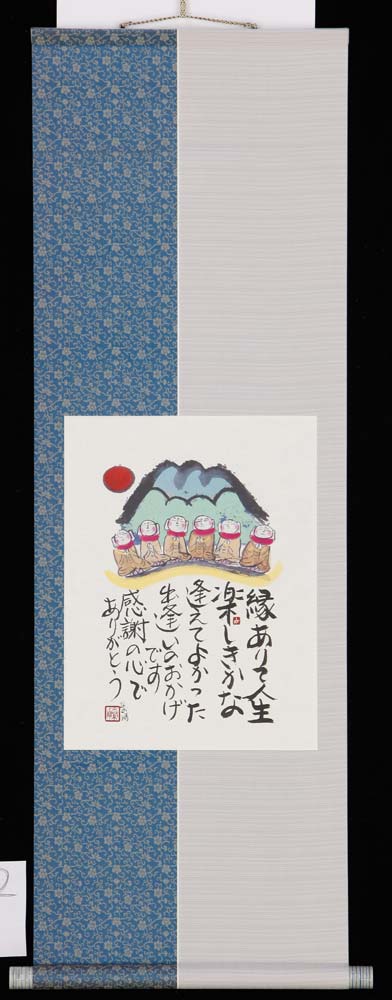 縁ありて人生
楽しきかな
逢えてよかった
出逢いのおかげ
です
感謝の心で
ありがとう